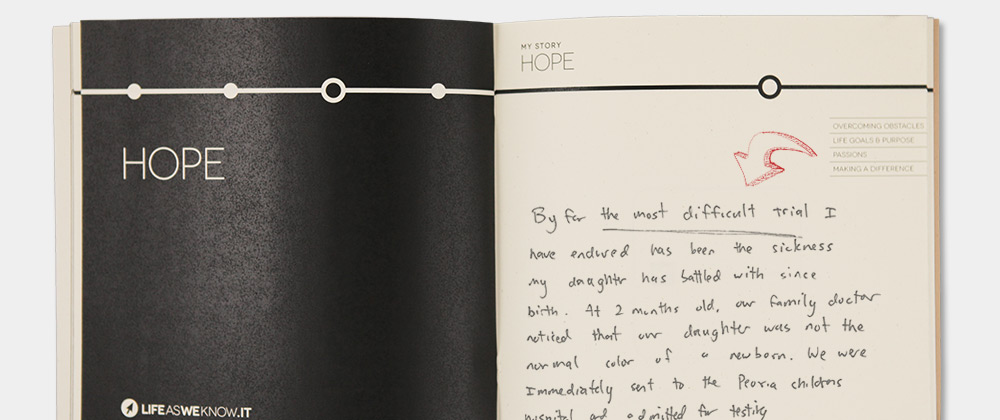 HOPE
LIFEASWEKNOW.IT
MY STORY
HOPE
OVERCOMING OBSTACLES
LIFE GOALS & PURPOSE
PASSIONS
MAKING A DIFFERENCE
By far the most difficult trial I
have endured has been the sickness
my daughter has battled with since
birth. At 2 months old, our family doctor
noticed that our daughter was not the
normal color of a newborn. We were
Immediately sent to the Peoria childrens
hospital and admitted for testing